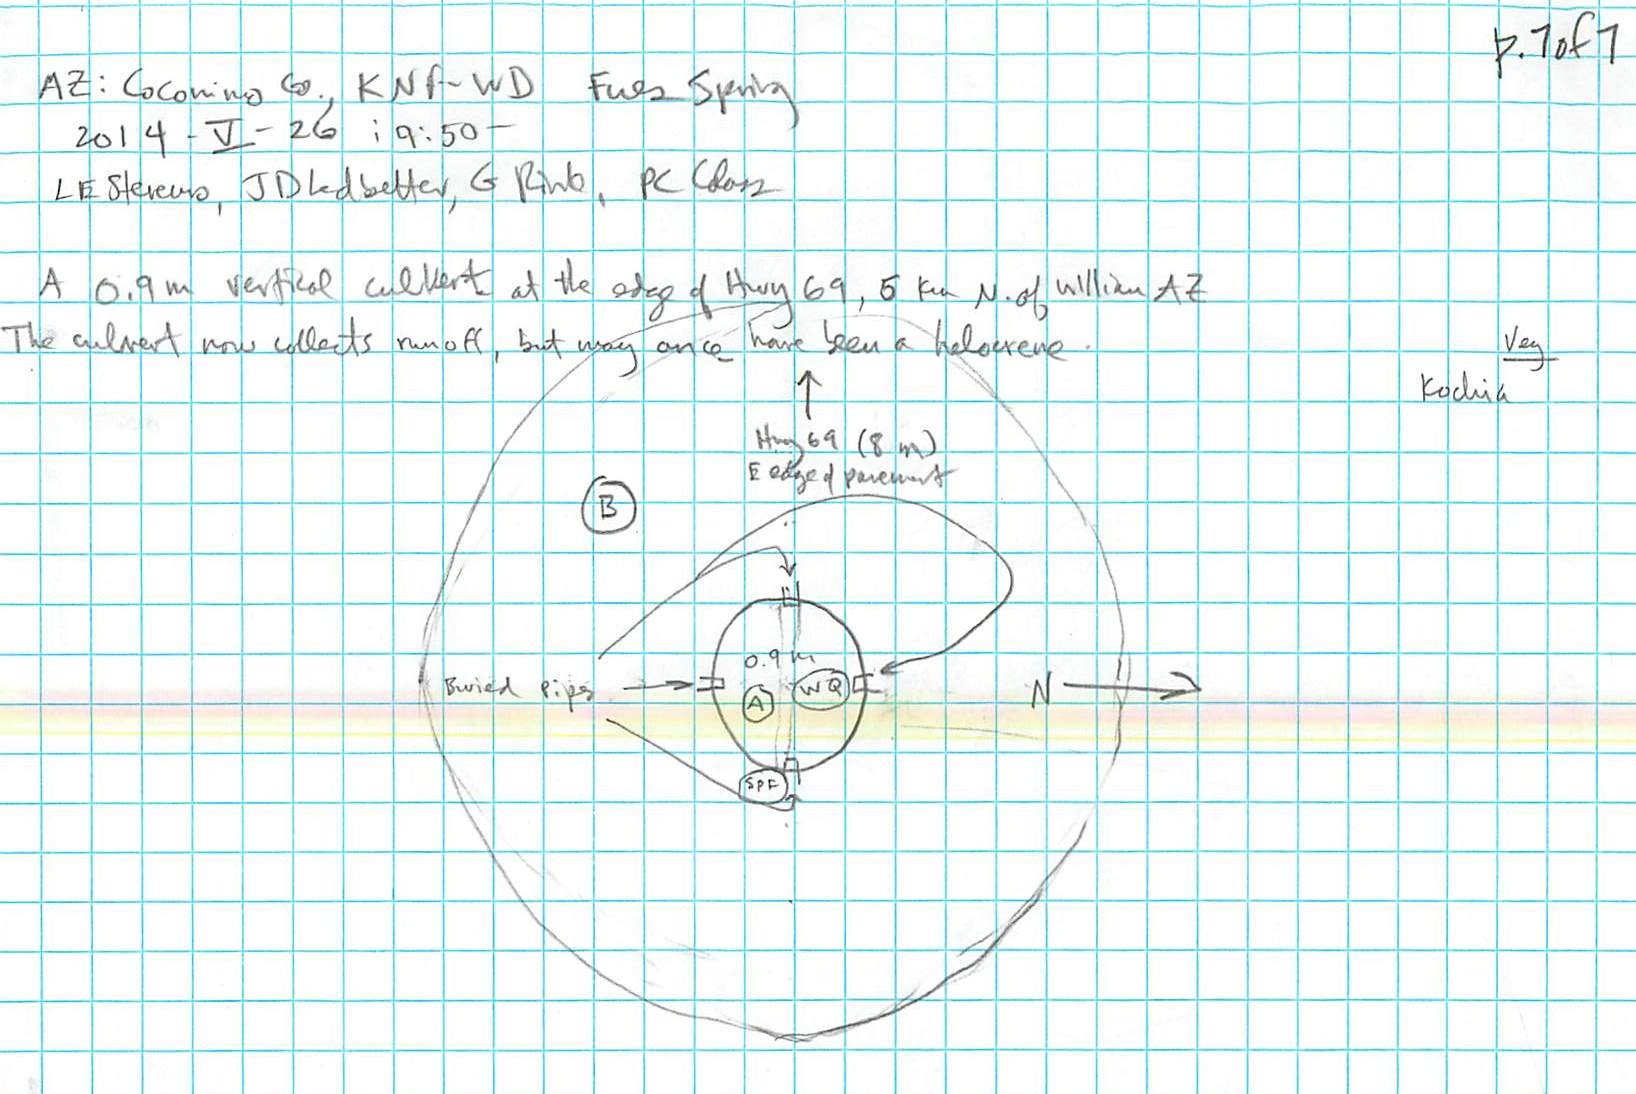 p. 7 of 7
AZ: Coconino Co., KNF-WD Fues Spring
2014-V-26 ; 9:50-
LE Stevens, JD Ledbetter, G Rink, PC
A 0.9m vertical culvert at the edge of Hwy 69, 5 km N. of William AZ
The culvert now collects runoff, but may once have been a helocrene.
Veg
Kochia
Hwy 69 (8 m)
E edge of pavement
B
0.9 m
Buried pipes
A
WQ
N
SPF